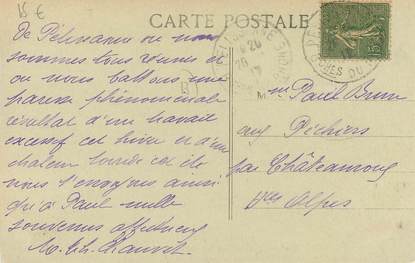 15 €
CARTE POSTALE
De Pélissanne où nous
sommes tous venus et
où nous battons une
paresse phénoménale
résultat d'un travail
excessif cet hiver et d'une
chaleur lourde cet été
nous t'envoyons ainsi
qu'à Paul mille
souvenirs affectueux
M. Th. Chauvet
Mr Paul Brun
aux Péchiers
par Châteauroux
Htes Alpes